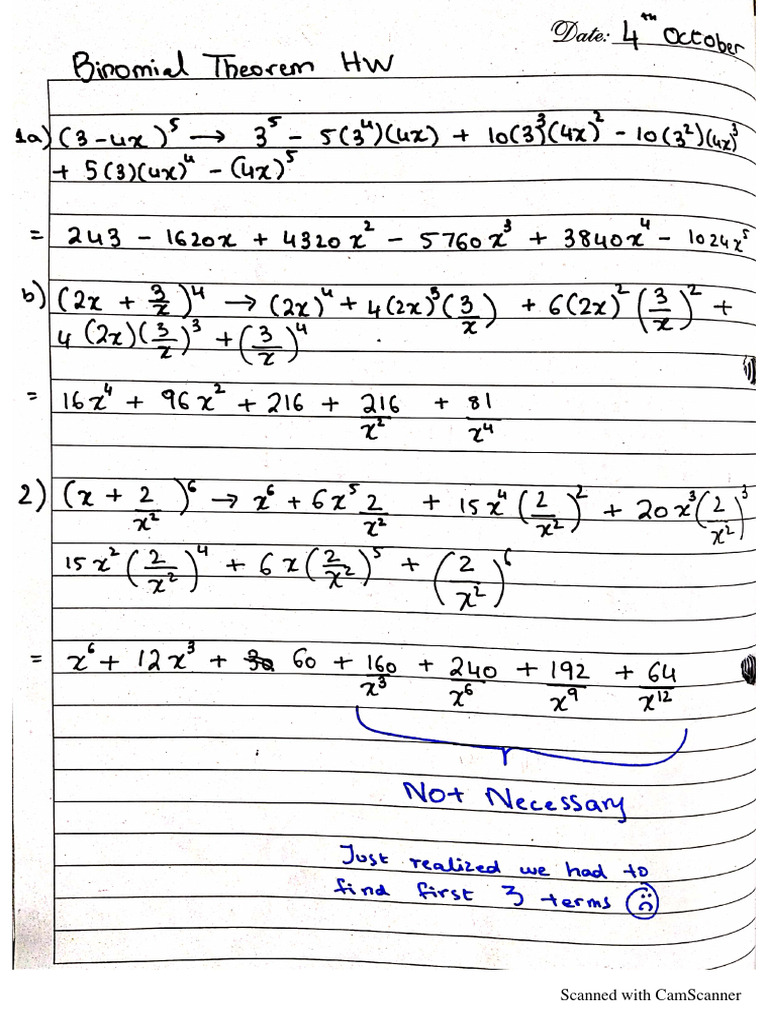 Date: 4th October
Binomial Theorem HW
1a) (3-4x)⁵ → 3⁵ - 5(3⁴)(4x) + 10(3)³(4x)² - 10(3²)(4x)³
+ 5(3)(4x)⁴ - (4x)⁵
= 243 - 1620x + 4320x² - 5760x³ + 3840x⁴ - 1024x⁵
b) (2x + 3/x)⁴ → (2x)⁴ + 4(2x)³(3/x) + 6(2x)²(3/x)² +
4(2x)(3/x)³ + (3/x)⁴
= 16x⁴ + 96x² + 216 + 216/x² + 81/x⁴
2) (x + 2/x²)⁶ → x⁶ + 6x⁵ 2/x² + 15x⁴(2/x²)² + 20x³(2/x²)³
15x²(2/x²)⁴ + 6x(2/x²)⁵ + (2/x²)⁶
= x⁶ + 12x³ + 60 + 160/x³ + 240/x⁶ + 192/x⁹ + 64/x¹²
Not Necessary
Just realized we had to
find first 3 terms ☹
Scanned with CamScanner